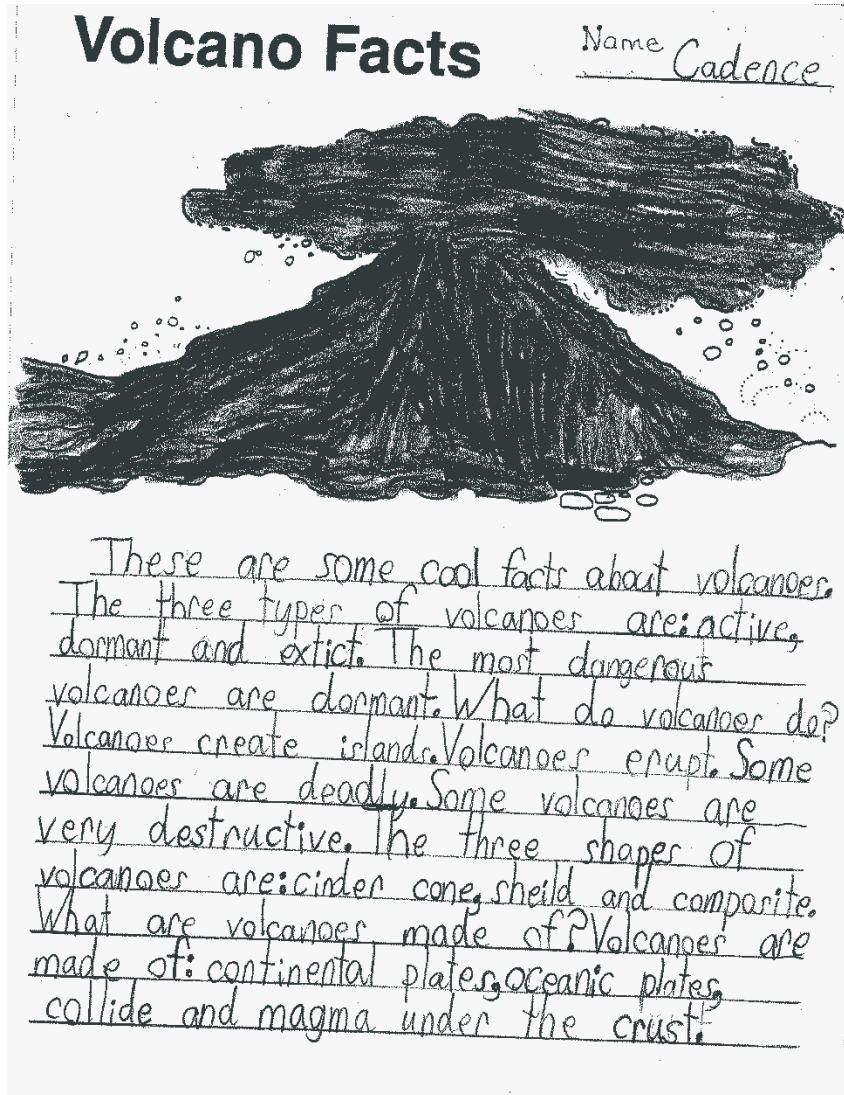 Volcano Facts
Name Cadence
These are some cool facts about volcanoes.
The three types of volcanoes are: active,
dormant and extict. The most dangerous
volcanoes are dormant. What do volcanoes do?
Volcanoes create islands. Volcanoes erupt. Some
volcanoes are deadly. Some volcanoes are
very destructive. The three shapes of
volcanoes are: cinder cone, sheild and composite.
What are volcanoes made of? Volcanoes are
made of: continental plates, oceanic plates,
collide and magma under the crust!